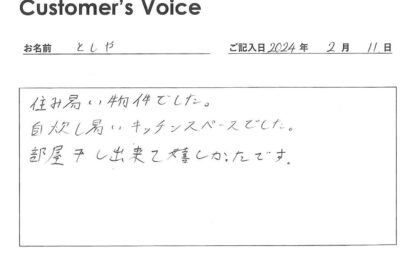 Customer's Voice
お名前 としや ご記入日 2024 年 2 月 11 日
住み易い物件でした。
自炊し易いキッチンスペースでした。
部屋干し出来て嬉しかったです。